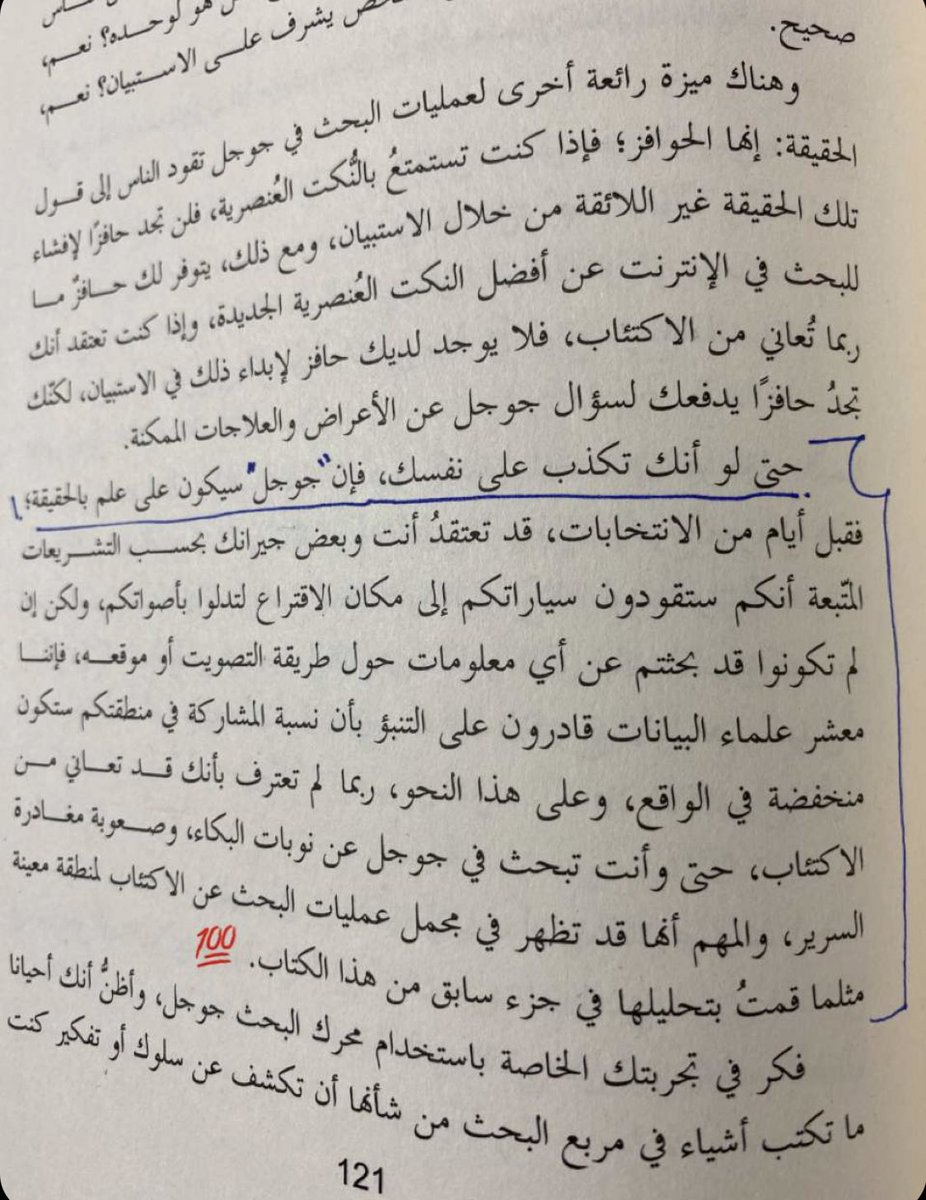 هو لوحده؟ نعم،
يشرف على الاستبيان؟ نعم،
صحيح.
وهناك ميزة رائعة أخرى لعمليات البحث في جوجل تقود الناس إلى قول
الحقيقة: إنها الحوافز؛ فإذا كنت تستمتعُ بالنُّكت العُنصرية، فلن تجد حافزًا لإفشاء
تلك الحقيقة غير اللائقة من خلال الاستبيان، ومع ذلك، يتوفر لك حافزٌ ما
للبحث في الإنترنت عن أفضل النكت العُنصرية الجديدة، وإذا كنت تعتقد أنك
ربما تُعاني من الاكتئاب، فلا يوجد لديك حافز لإبداء ذلك في الاستبيان، لكنّك
تجدُ حافزًا يدفعك لسؤال جوجل عن الأعراض والعلاجات الممكنة.
حتى لو أنك تكذب على نفسك، فإن "جوجل" سيكون على علم بالحقيقة؛
فقبل أيام من الانتخابات، قد تعتقدُ أنت وبعض جيرانك بحسب التشريعات
المتّبعة أنكم ستقودون سياراتكم إلى مكان الاقتراع لتدلوا بأصواتكم، ولكن إن
لم تكونوا قد بحثتم عن أي معلومات حول طريقة التصويت أو موقعه، فإننا
معشر علماء البيانات قادرون على التنبؤ بأن نسبة المشاركة في منطقتكم ستكون
منخفضة في الواقع، وعلى هذا النحو، ربما لم تعترف بأنك قد تعاني من
الاكتئاب، حتى وأنت تبحث في جوجل عن نوبات البكاء، وصعوبة مغادرة
السرير، والمهم أنها قد تظهر في مجمل عمليات البحث عن الاكتئاب لمنطقة معينة
مثلما قمتُ بتحليلها في جزء سابق من هذا الكتاب. 100
فكر في تجربتك الخاصة باستخدام محرك البحث جوجل، وأظنُّ أنك أحيانا
ما تكتب أشياء في مربع البحث من شأنها أن تكشف عن سلوك أو تفكير كنت
121